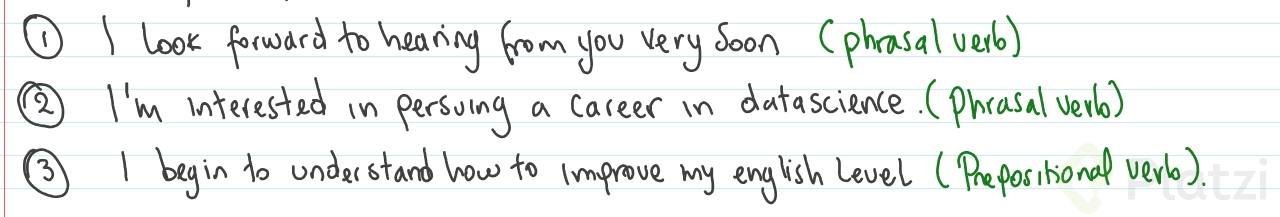 ① I look forward to hearing from you very soon (phrasal verb)
② I'm interested in persuing a career in datascience. (Phrasal verb)
③ I begin to understand how to improve my english level (Prepositional verb).
Platzi